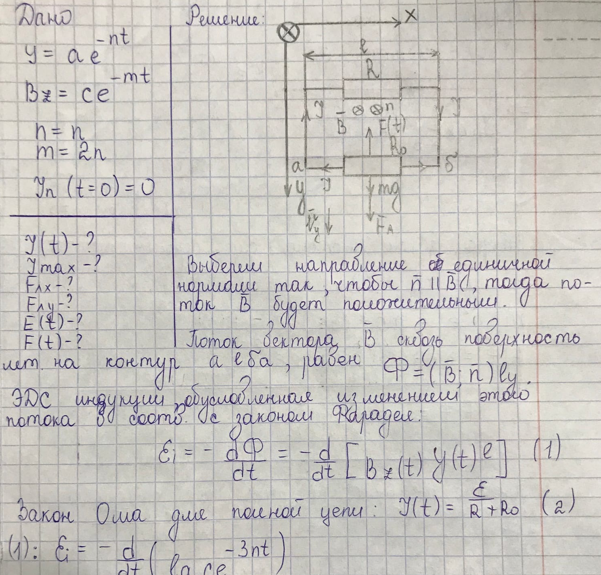 Дано
y = a e^{-nt}
Bz = ce^{-mt}
n = n
m = 2n
Yn (t=0) = 0
Y(t) - ?
Ymax - ?
FΛx - ?
FΛy - ?
E(t) - ?
F(t) - ?
Решение:
x
l
R
J
J
B̄ n̄
F(t)
R0
а
б
J
y
mg
V̄y
F̄A
Выберем направление единичной
нормали так, чтобы n̄ || B̄, тогда по-
ток B̄ будет положительным.
Поток вектора B̄ сквозь поверхность
, на контур а б а, равен Ф = (B̄, n̄) ly.
ЭДС индукции, обусловленная изменением этого
потока в соотв. с законом Фарадея:
Ɛi = - dФ/dt = - d/dt [Bz(t) y(t) l] (1)
Закон Ома для полной цепи: Y(t) = Ɛ/(R + R0) (2)
(1): Ɛi = - d/dt (la ce^{-3nt})